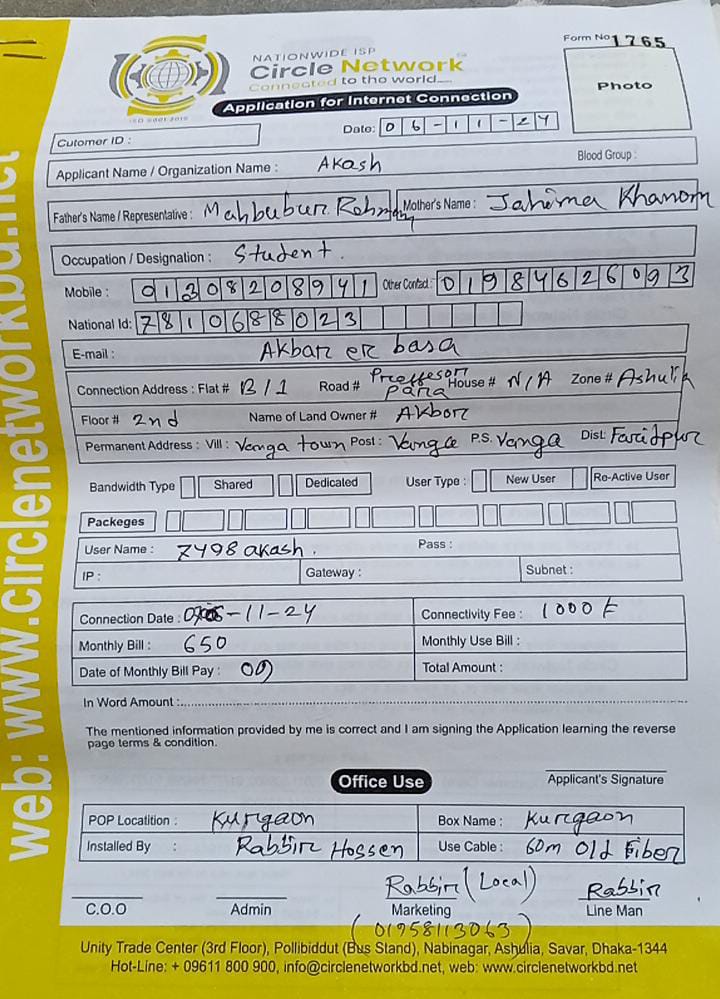 web: www.circlenetworkbd.net
NATIONWIDE ISP
Circle Network
Connected to the world....
ISO 9001:2015
Form No 1765
Photo
Application for Internet Connection
Date: 06-11-24
Cutomer ID :
Applicant Name / Organization Name : Akash Blood Group :
Father's Name / Representative : Mahbubur Rahman Mother's Name : Jahima Khanom
Occupation / Designation : Student.
Mobile : 01308208941 Other Contact : 01984626093
National Id: 7810688023
E-mail : Akbar er basa
Connection Address : Flat # B/1 Road # Para House # N/A Zone # Ashulia
Floor # 2nd Name of Land Owner # Akbor
Permanent Address : Vill : Vanga town Post : Vanga P.S. Vanga Dist: Faridpur
Bandwidth Type Shared Dedicated User Type : New User Re-Active User
Packeges
User Name : 7498 akash. Pass :
IP : Gateway : Subnet :
Connection Date : -11-24 Connectivity Fee : 1000 ৳
Monthly Bill : 650 Monthly Use Bill :
Date of Monthly Bill Pay : Total Amount :
In Word Amount :
The mentioned information provided by me is correct and I am signing the Application learning the reverse
page terms & condition.
Office Use
Applicant's Signature
POP Locatition : Kurgaon Box Name : Kurgaon
Installed By : Rabbir Hossen Use Cable : 60m Old Fiber
Rabbir (Local) Rabbir
C.O.O Admin Marketing Line Man
(01958113063)
Unity Trade Center (3rd Floor), Pollibiddut (Bus Stand), Nabinagar, Ashulia, Savar, Dhaka-1344
Hot-Line: + 09611 800 900, info@circlenetworkbd.net, web: www.circlenetworkbd.net